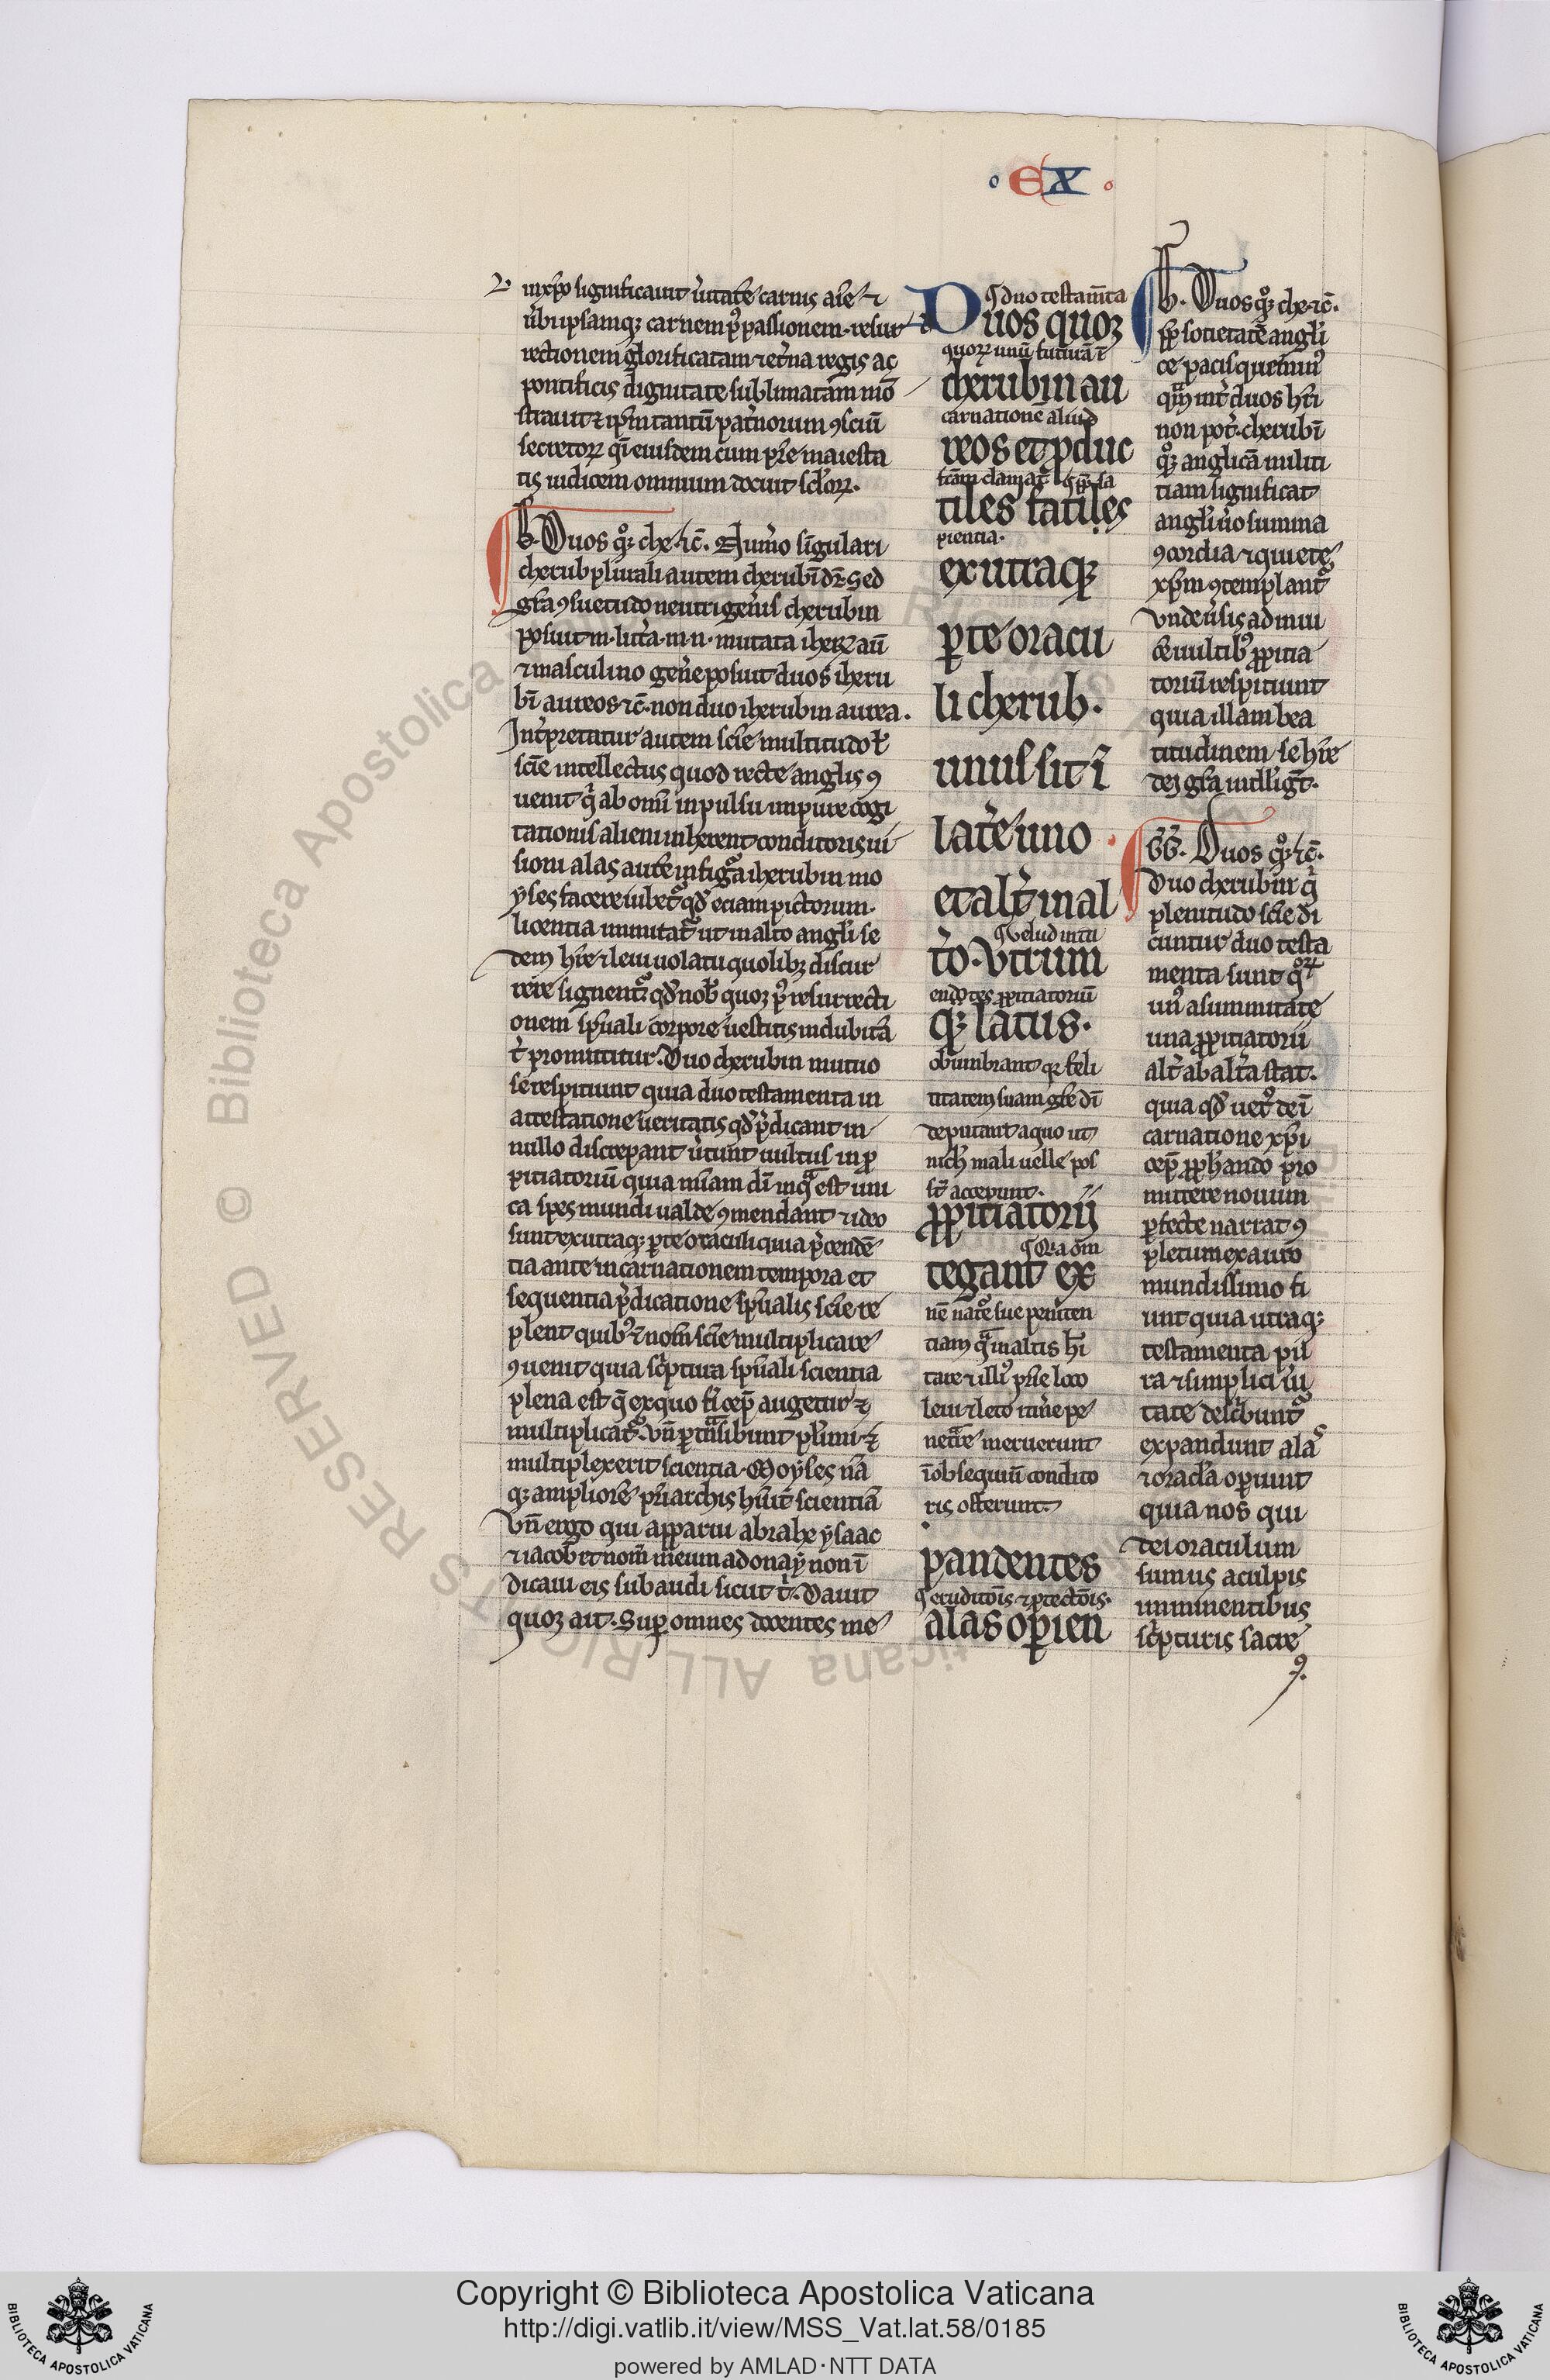 EX
in xpo significauit uitate carnis assue ⁊
ubi ipsamqꝫ carnem p passionem resur
rectionem glorificatam ⁊ et̾na regis ac
pontificis dignitate sublimatam mō
strauit ⁊ ip̄m tantū pat̾norum ꝯsciū
secretoꝝ qͥ eiusdem cum pr̄e maiesta
tis iudicem omnium docuit sc̄loꝝ.
b. Duos qͦꝫ che ⁊c̄. Num̾o singulari
cherub plurali autem cherubī dr̄ Sed
gr̄a ꝯsuetudo neutri gen̾is cherubin
posuit m. litt̾a. in n. mutata iherꝫ aū
⁊ masculino gen̾e posuit duos cheru
bī aureos ⁊c̄. non duo cherubin aurea.
Int̾pretatur autem scīe multitudo ł
scīe intellectus quod recte anglis ꝯ
uenit qͥ ab omī inpulsu impure cogi
tationis alieni inherent conditoris ui
sioni alas aute in figͣ cherubin mo
yses facere iubet᷑ qd̾ eciam pictorum
licentia imitat᷑ ut in alto angl̄i se
dem hr̄e ⁊ leui uolatu quolibꝫ discur
rere signent᷑ qd̾ nob̄ quoꝫ p̾ resurrecti
onem sp̄uali corpore uestitis indubitā
t̾ promittitur. Duo cherubin mutuo
se respiciunt quia duo testamenta in
attestatione ueritatis qd̾ p̾dicant in
nullo discrepant u̾tunt uultus in ꝓ
piciatoriū quia mīam dī in qͣ est uni
ca spes mundi ualde ꝯmendant ⁊ ideo
sunt ex utraqꝫ ꝑte oraculi quia p̾cendē
tia ante incarnationem tempora et
sequentia p̾dicatione sp̄ualis scīe re
plent quibꝰ ⁊ nom̄ scīe multiplicare
ꝯuenit quia sc̾ptura sp̄uali scientia
plena est q̄ ex quo fi̾ cep̄ augetur ⁊
multiplicat᷑. vn̄ ꝑtͣnsibunt plimi ⁊
multiplex erit scientia. Moyses nā
qꝫ ampliorē pr̄iarchis hūit scientiā
Vn̄ ergo qui apparui abrahe ysaac
⁊ iacob et nom̄ meum adonay non ī
dicaui eis subaudi sicut t̾. Dauit
quoꝫ ait. Super omnes docentes me
¶ duo testam̄ta
Duos quoꝫ
quoꝝ unū futurā ī
cherubin au
carnationē aliud
reos et ꝓduc
fcām clamat᷑
tiles facies
pientia.
ex utraqꝫ
ꝑte oracu
li cherub.
unus sit ī
lat̾e uno
et alt̾ in al
¶ velud intu
t̾o. Vtrum
endotes ꝓpitiatoriū
qꝫ latus.
obumbrant qꝫ feli
citatem suam gr̄e dī
deputant a quo ut
nich̄ mali uelle pos
st̄ acceperunt.
ꝓpitiatorij
¶ Qͥa om̄
tegant ex
nē natͦ sue peniten
tiam qͣ in altis h̄i
tare ⁊ illiꝰ pr̄ie loco
leui ⁊ leto itin̾e pe
netͣre meruerunt
ī obsequiū condito
ris offerunt.
pandentes
¶ eruditōis ⁊ ꝓtectōis.
alas operien
b. Duos qͦꝫ che ⁊c̄.
ꝓp̄ societatē angli
ce pacis que minꝰ
qͣm int̾ duos hr̄i
non pot̾. cherubī
qͦꝫ anglicā militi
tiam significat
angl̄i u̾o summa
ꝯcordia ⁊ quiete
xp̄m ꝯtemplant᷑
Vnde u̾sis ad inui
cē uultibꝰ ꝓpitia
toriū respiciunt
quia illam bea
titudinem se hr̄e
dei gr̄a intelligt̄.
GG. Duos qͦꝫ ⁊c̄.
Duo cherubin qͥ
plenitudo scīe di
cuntur duo testa
menta sunt qͦꝝ
unꝰ a summitate
una ꝓpitiatorii
alt̾ ab alt̾a stat.
quia qd̾ uetꝰ de ī
carnatione xp̄i
cep̄ ꝓph̄ando pro
mittere nouum
ꝑfecte narrat ꝯ
pletum ex auro
mundissimo fi
unt quia utraqꝫ
testamenta pu
ra ⁊ simplici u̾i
tate desc̾bunt᷑
expandunt alas
⁊ oracl̄a operiunt
quia nos qui
dei oraculum
sumus a culpis
imminentibus
sc̾pturis sacre
Copyright © Biblioteca Apostolica Vaticana
http://digi.vatlib.it/view/MSS_Vat.lat.58/0185
powered by AMLAD·NTT DATA